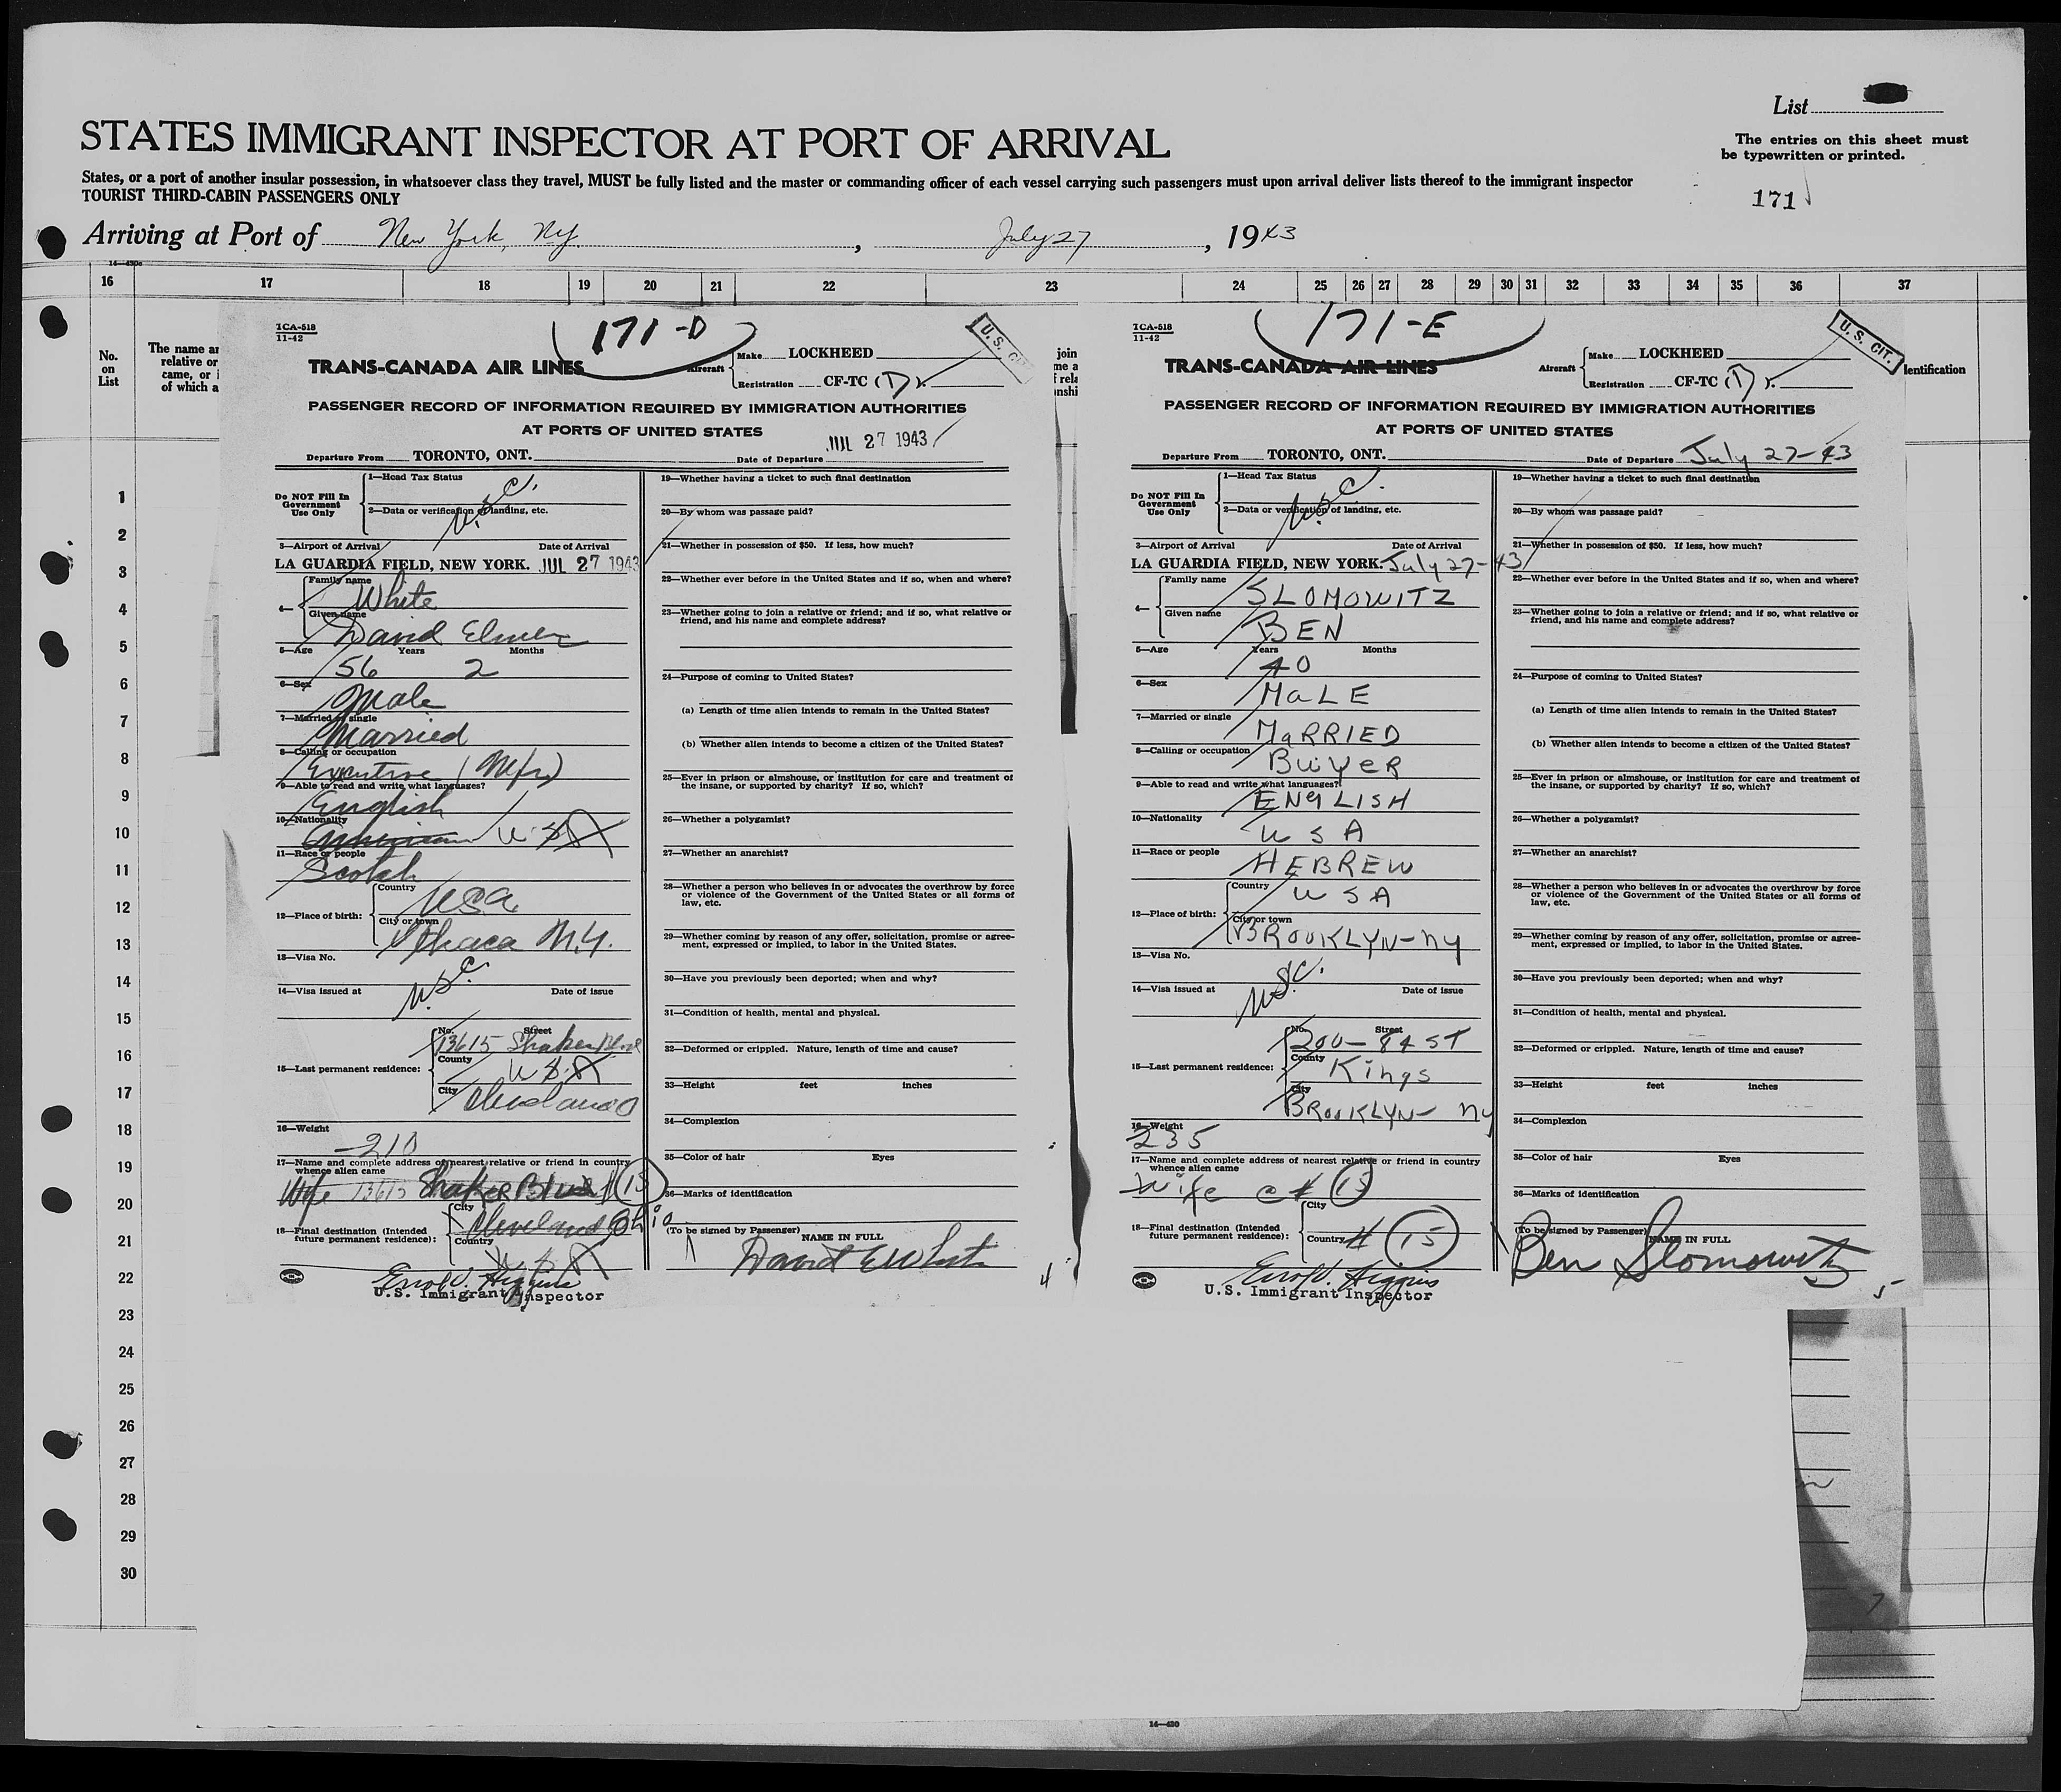 List
The entries on this sheet must
be typewritten or printed.
STATES IMMIGRANT INSPECTOR AT PORT OF ARRIVAL
States, or a port of another insular possession, in whatsoever class they travel, MUST be fully listed and the master or commanding officer of each vessel carrying such passengers must upon arrival deliver lists thereof to the immigrant inspector
TOURIST THIRD-CABIN PASSENGERS ONLY
171
Arriving at Port of New York, NY. , July 27 , 1943
16 17 18 19 20 21 22 23 24 25 26 27 28 29 30 31 32 33 34 35 36 37
No. on List
The name an
relative or
came, or i
of which a
join
me a
f rela
onshi
dentification
1
2
3
4
5
6
7
8
9
10
11
12
13
14
15
16
17
18
19
20
21
22
23
24
25
26
27
28
29
30
TCA-518
11-42
171-D
U.S. CIT.
TRANS-CANADA AIR LINES
Aircraft
Make LOCKHEED
Registration CF-TC (T).
PASSENGER RECORD OF INFORMATION REQUIRED BY IMMIGRATION AUTHORITIES
AT PORTS OF UNITED STATES
Departure From TORONTO, ONT. Date of Departure JUL 27 1943
Do NOT Fill In
Government
Use Only
1—Head Tax Status
U.S.C.
2—Data or verification of landing, etc.
3—Airport of Arrival Date of Arrival
LA GUARDIA FIELD, NEW YORK. JUL 27 1943
4—
Family name
White
Given name
David Elmer
5—Age Years Months
56 2
6—Sex
Male
7—Married or single
Married
8—Calling or occupation
Executive (Mfr)
9—Able to read and write what languages?
English
10—Nationality
American USA
11—Race or people
Scotch
12—Place of birth:
Country
USA
City or town
Ithaca N.Y.
13—Visa No.
U.S.C.
14—Visa issued at Date of issue
15—Last permanent residence:
No. Street
13615 Shaker Blvd
County
U.S.A
City
Cleveland O
16—Weight
210
17—Name and complete address of nearest relative or friend in country
whence alien came
Wife 13615 Shaker Blvd # 15
18—Final destination (Intended
future permanent residence):
City
Cleveland Ohio
Country
USA
Errol V. Higgins
U.S. Immigrant Inspector
19—Whether having a ticket to such final destination
20—By whom was passage paid?
21—Whether in possession of $50. If less, how much?
22—Whether ever before in the United States and if so, when and where?
23—Whether going to join a relative or friend; and if so, what relative or
friend, and his name and complete address?
24—Purpose of coming to United States?
(a) Length of time alien intends to remain in the United States?
(b) Whether alien intends to become a citizen of the United States?
25—Ever in prison or almshouse, or institution for care and treatment of
the insane, or supported by charity? If so, which?
26—Whether a polygamist?
27—Whether an anarchist?
28—Whether a person who believes in or advocates the overthrow by force
or violence of the Government of the United States or all forms of
law, etc.
29—Whether coming by reason of any offer, solicitation, promise or agree-
ment, expressed or implied, to labor in the United States.
30—Have you previously been deported; when and why?
31—Condition of health, mental and physical.
32—Deformed or crippled. Nature, length of time and cause?
33—Height feet inches
34—Complexion
35—Color of hair Eyes
36—Marks of identification
(To be signed by Passenger)
NAME IN FULL
David E White
4
TCA-518
11-42
171-E
U.S. CIT.
TRANS-CANADA AIR LINES
Aircraft
Make LOCKHEED
Registration CF-TC (T).
PASSENGER RECORD OF INFORMATION REQUIRED BY IMMIGRATION AUTHORITIES
AT PORTS OF UNITED STATES
Departure From TORONTO, ONT. Date of Departure July 27-43
Do NOT Fill In
Government
Use Only
1—Head Tax Status
U.S.C.
2—Data or verification of landing, etc.
3—Airport of Arrival Date of Arrival
LA GUARDIA FIELD, NEW YORK. July 27-43
4—
Family name
SLOMOWITZ
Given name
BEN
5—Age Years Months
40
6—Sex
MaLE
7—Married or single
MaRRIED
8—Calling or occupation
BuyeR
9—Able to read and write what languages?
ENgLISH
10—Nationality
USA
11—Race or people
HEBREW
12—Place of birth:
Country
USA
City or town
BROOKLYN-NY
13—Visa No.
U.S.C.
14—Visa issued at Date of issue
15—Last permanent residence:
No. Street
200-84 ST
County
Kings
City
BROOKLYN- NY
16—Weight
235
17—Name and complete address of nearest relative or friend in country
whence alien came
Wife @ # 15
18—Final destination (Intended
future permanent residence):
City
Country
# 15
Errol V. Higgins
U.S. Immigrant Inspector
19—Whether having a ticket to such final destination
20—By whom was passage paid?
21—Whether in possession of $50. If less, how much?
22—Whether ever before in the United States and if so, when and where?
23—Whether going to join a relative or friend; and if so, what relative or
friend, and his name and complete address?
24—Purpose of coming to United States?
(a) Length of time alien intends to remain in the United States?
(b) Whether alien intends to become a citizen of the United States?
25—Ever in prison or almshouse, or institution for care and treatment of
the insane, or supported by charity? If so, which?
26—Whether a polygamist?
27—Whether an anarchist?
28—Whether a person who believes in or advocates the overthrow by force
or violence of the Government of the United States or all forms of
law, etc.
29—Whether coming by reason of any offer, solicitation, promise or agree-
ment, expressed or implied, to labor in the United States.
30—Have you previously been deported; when and why?
31—Condition of health, mental and physical.
32—Deformed or crippled. Nature, length of time and cause?
33—Height feet inches
34—Complexion
35—Color of hair Eyes
36—Marks of identification
(To be signed by Passenger)
NAME IN FULL
Ben Slomowitz
5
7
14—430